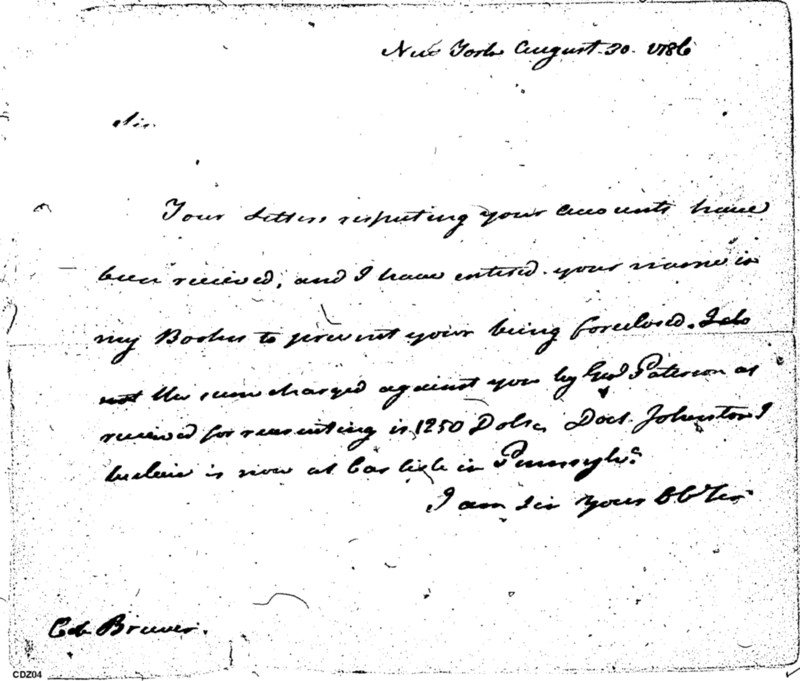 New York August 30. 1786
Sir.
Your Letters respecting your accounts have
been received, and I have entered your name in
my Books to prevent your being foreclosed. I do
not the sum charged against you by Genl Paterson as
received for recruiting is 1250 Dols. Doct. Johnston I
believe is now at Carlisle in Pennsylva.
I am Sir your Ob Ser
Col. Brewer.
CDZ04